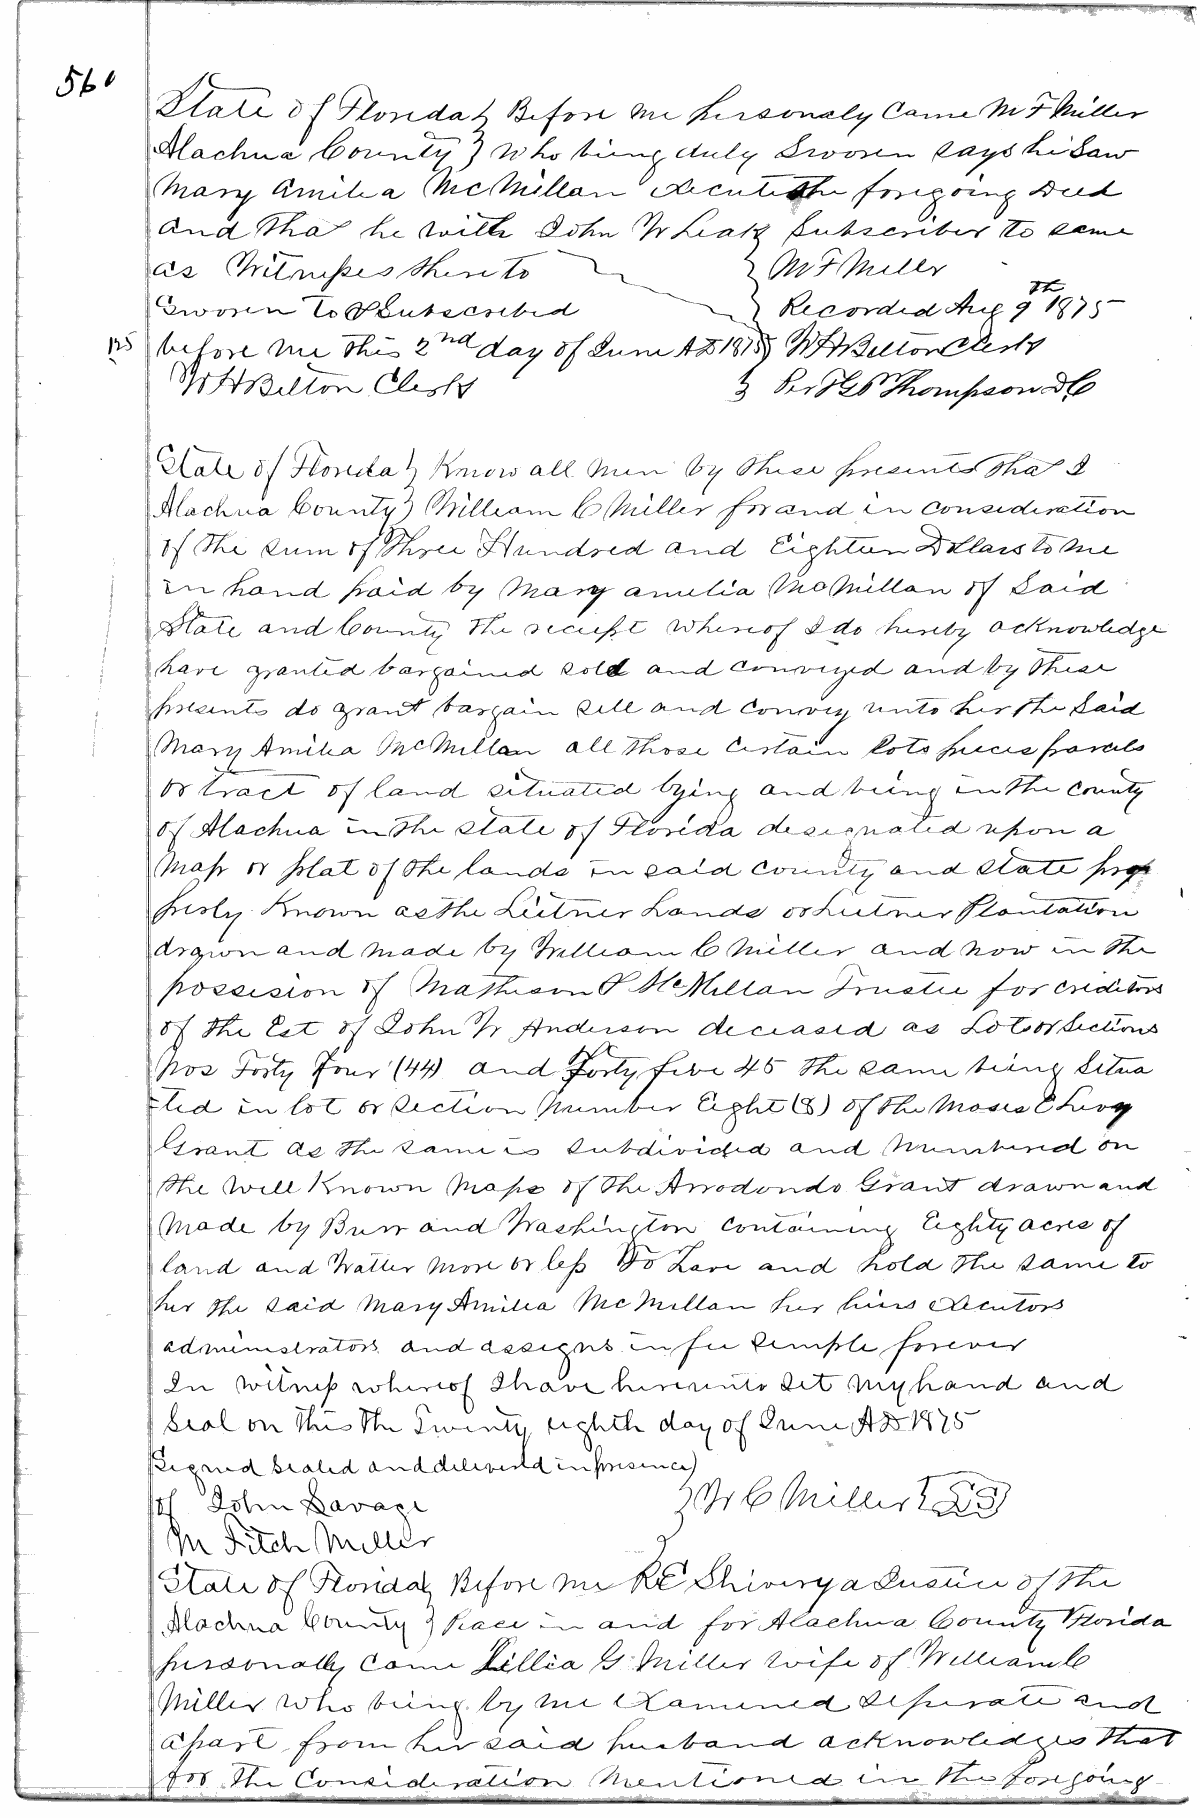 560
State of Florida } Before me personaly Came M F Miller
Alachua County } Who being duly Swoorn says he Saw
Mary Amilia McMillan execute the foregoing Deed
and that he with John W Leak Subscriber to same
as Witnesses thereto } M F Miller
Swoorn to & Subscribed } Recorded Aug 9th 1875
125 before me this 2nd day of June AD 1875 } W H Belton Clerk
W H Belton Clerk } Per Thompson DC
State of Florida } Know all Men by these presents that I
Alachua County } William C Miller for and in consideration
of the sum of Three Hundred and Eighteen Dollars to me
in hand paid by Mary amelia McMillan of Said
State and County the reciept whereof I do hereby acknowledge
have granted bargained sold and conveyed and by these
presents do grant bargain sell and convey unto her the Said
Mary Amilia McMillan all those certain lots pieces parcels
or tract of land situated lying and being in the county
of Alachua in the state of Florida designated upon a
Map or plat of the lands in said county and state prop
perly Known as the Leitner Lands or Leitner Plantation
drawn and made by William C Miller and now in the
possision of Matheson & McMillan Trustee for creditors
of the Est of John W Anderson deceased as Lots or Sections
Nos Forty Four (44) and Forty five 45 the same being Situa
=ted in lot or section Number Eight (8) of the Moses E Levy
Grant as the same is subdivided and Numbered on
the Well Known Maps of the Arrodondo Grant drawn and
Made by Burr and Washington containing Eighty acres of
land and Watter More or less To Have and hold the same to
her the said Mary Amilia McMillan her heirs executors
administrators and assigns in fee simple forever
In witness whereof I have hereunto Set My hand and
Seal on this the Twenty eighth day of June AD 1875
Signed Sealed and deliverd in presence)
of John Savage } W C Miller {LS}
M Fitch Miller
State of Florida } Before me R E Shivery a Justice of the
Alachua County } Peace in and for Alachua County Florida
personally came Lillia G Miller wife of William C
Miller who being by me examined seperate and
apart from her said husband acknowledges that
for the Consideration Mentioned in the foregoing